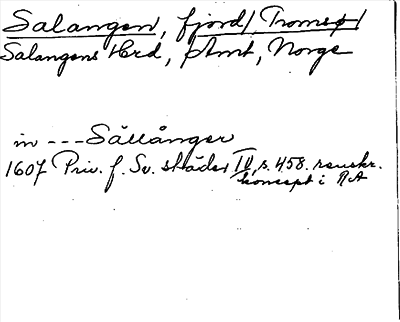 Salangen, fjord, Tromsø
Salangens Hrd, Amt, Norge
in --- Sällånger
1607 Priv. f. Sv. städer IV, s. 458. renskr.
koncept i RA